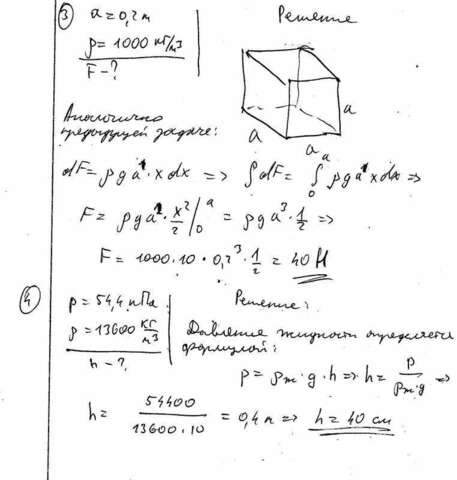 ③ a = 0,2 м
Решение
ρ = 1000 кг/м³
F - ?
a
a
a
Аналогично
предыдущей задаче:
dF = ρga¹·xdx => ∫dF = ∫₀ᵃ ρga¹xdx =>
F = ρga¹·x²/2 |₀ᵃ = ρga³·1/2 =>
F = 1000·10·0,2³·1/2 = 40 Н
④ p = 54,4 кПа
Решение:
ρ = 13600 кг/м³
h - ?
Давление жидкости определяется
формулой:
p = ρж·g·h => h = p/ρж·g =>
h = 54400/13600·10 = 0,4 м => h = 40 см